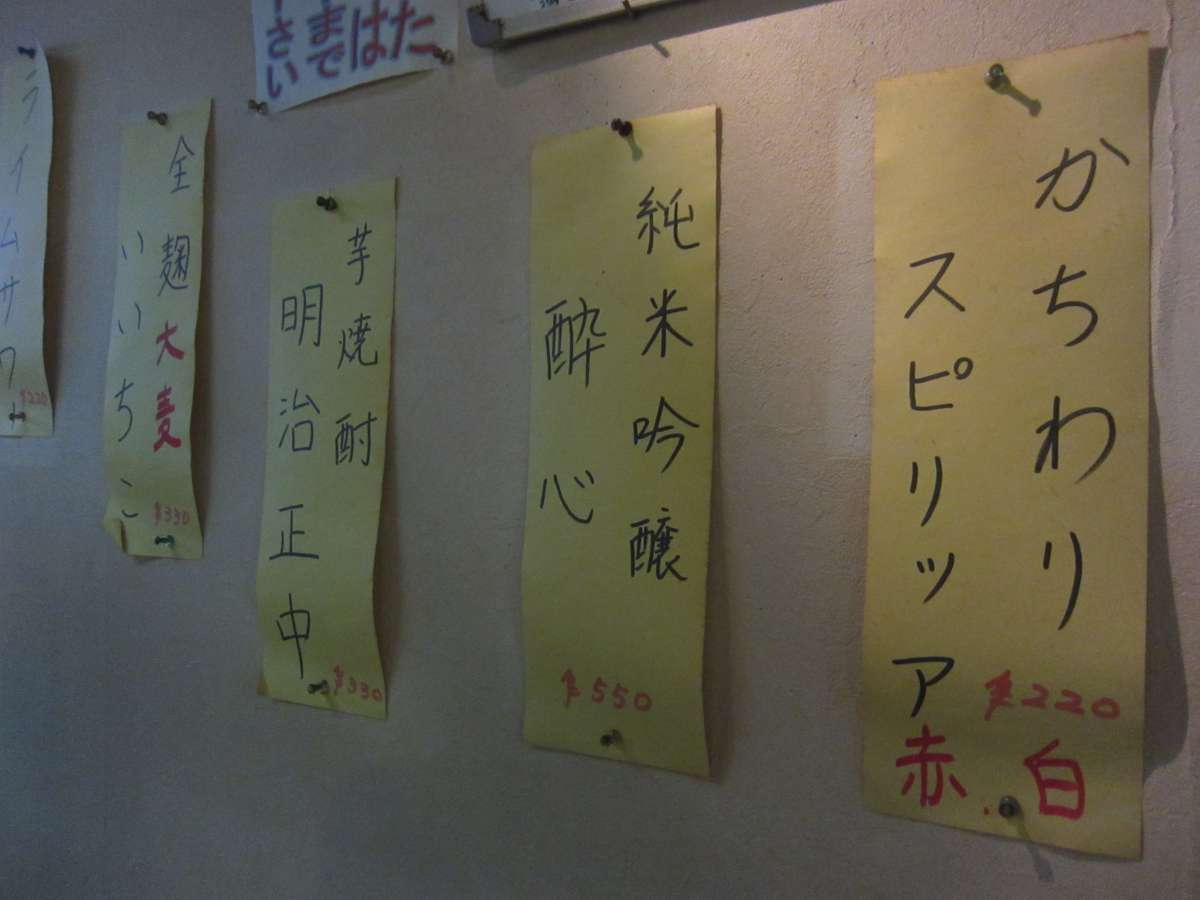 かちわり
スピリッア
¥220
白
赤
純米吟醸
酔心
¥550
芋焼酎
明治正中
¥330
全麹大麦
いいちこ
¥330
ライムサワー
¥220
はた
まで
さい